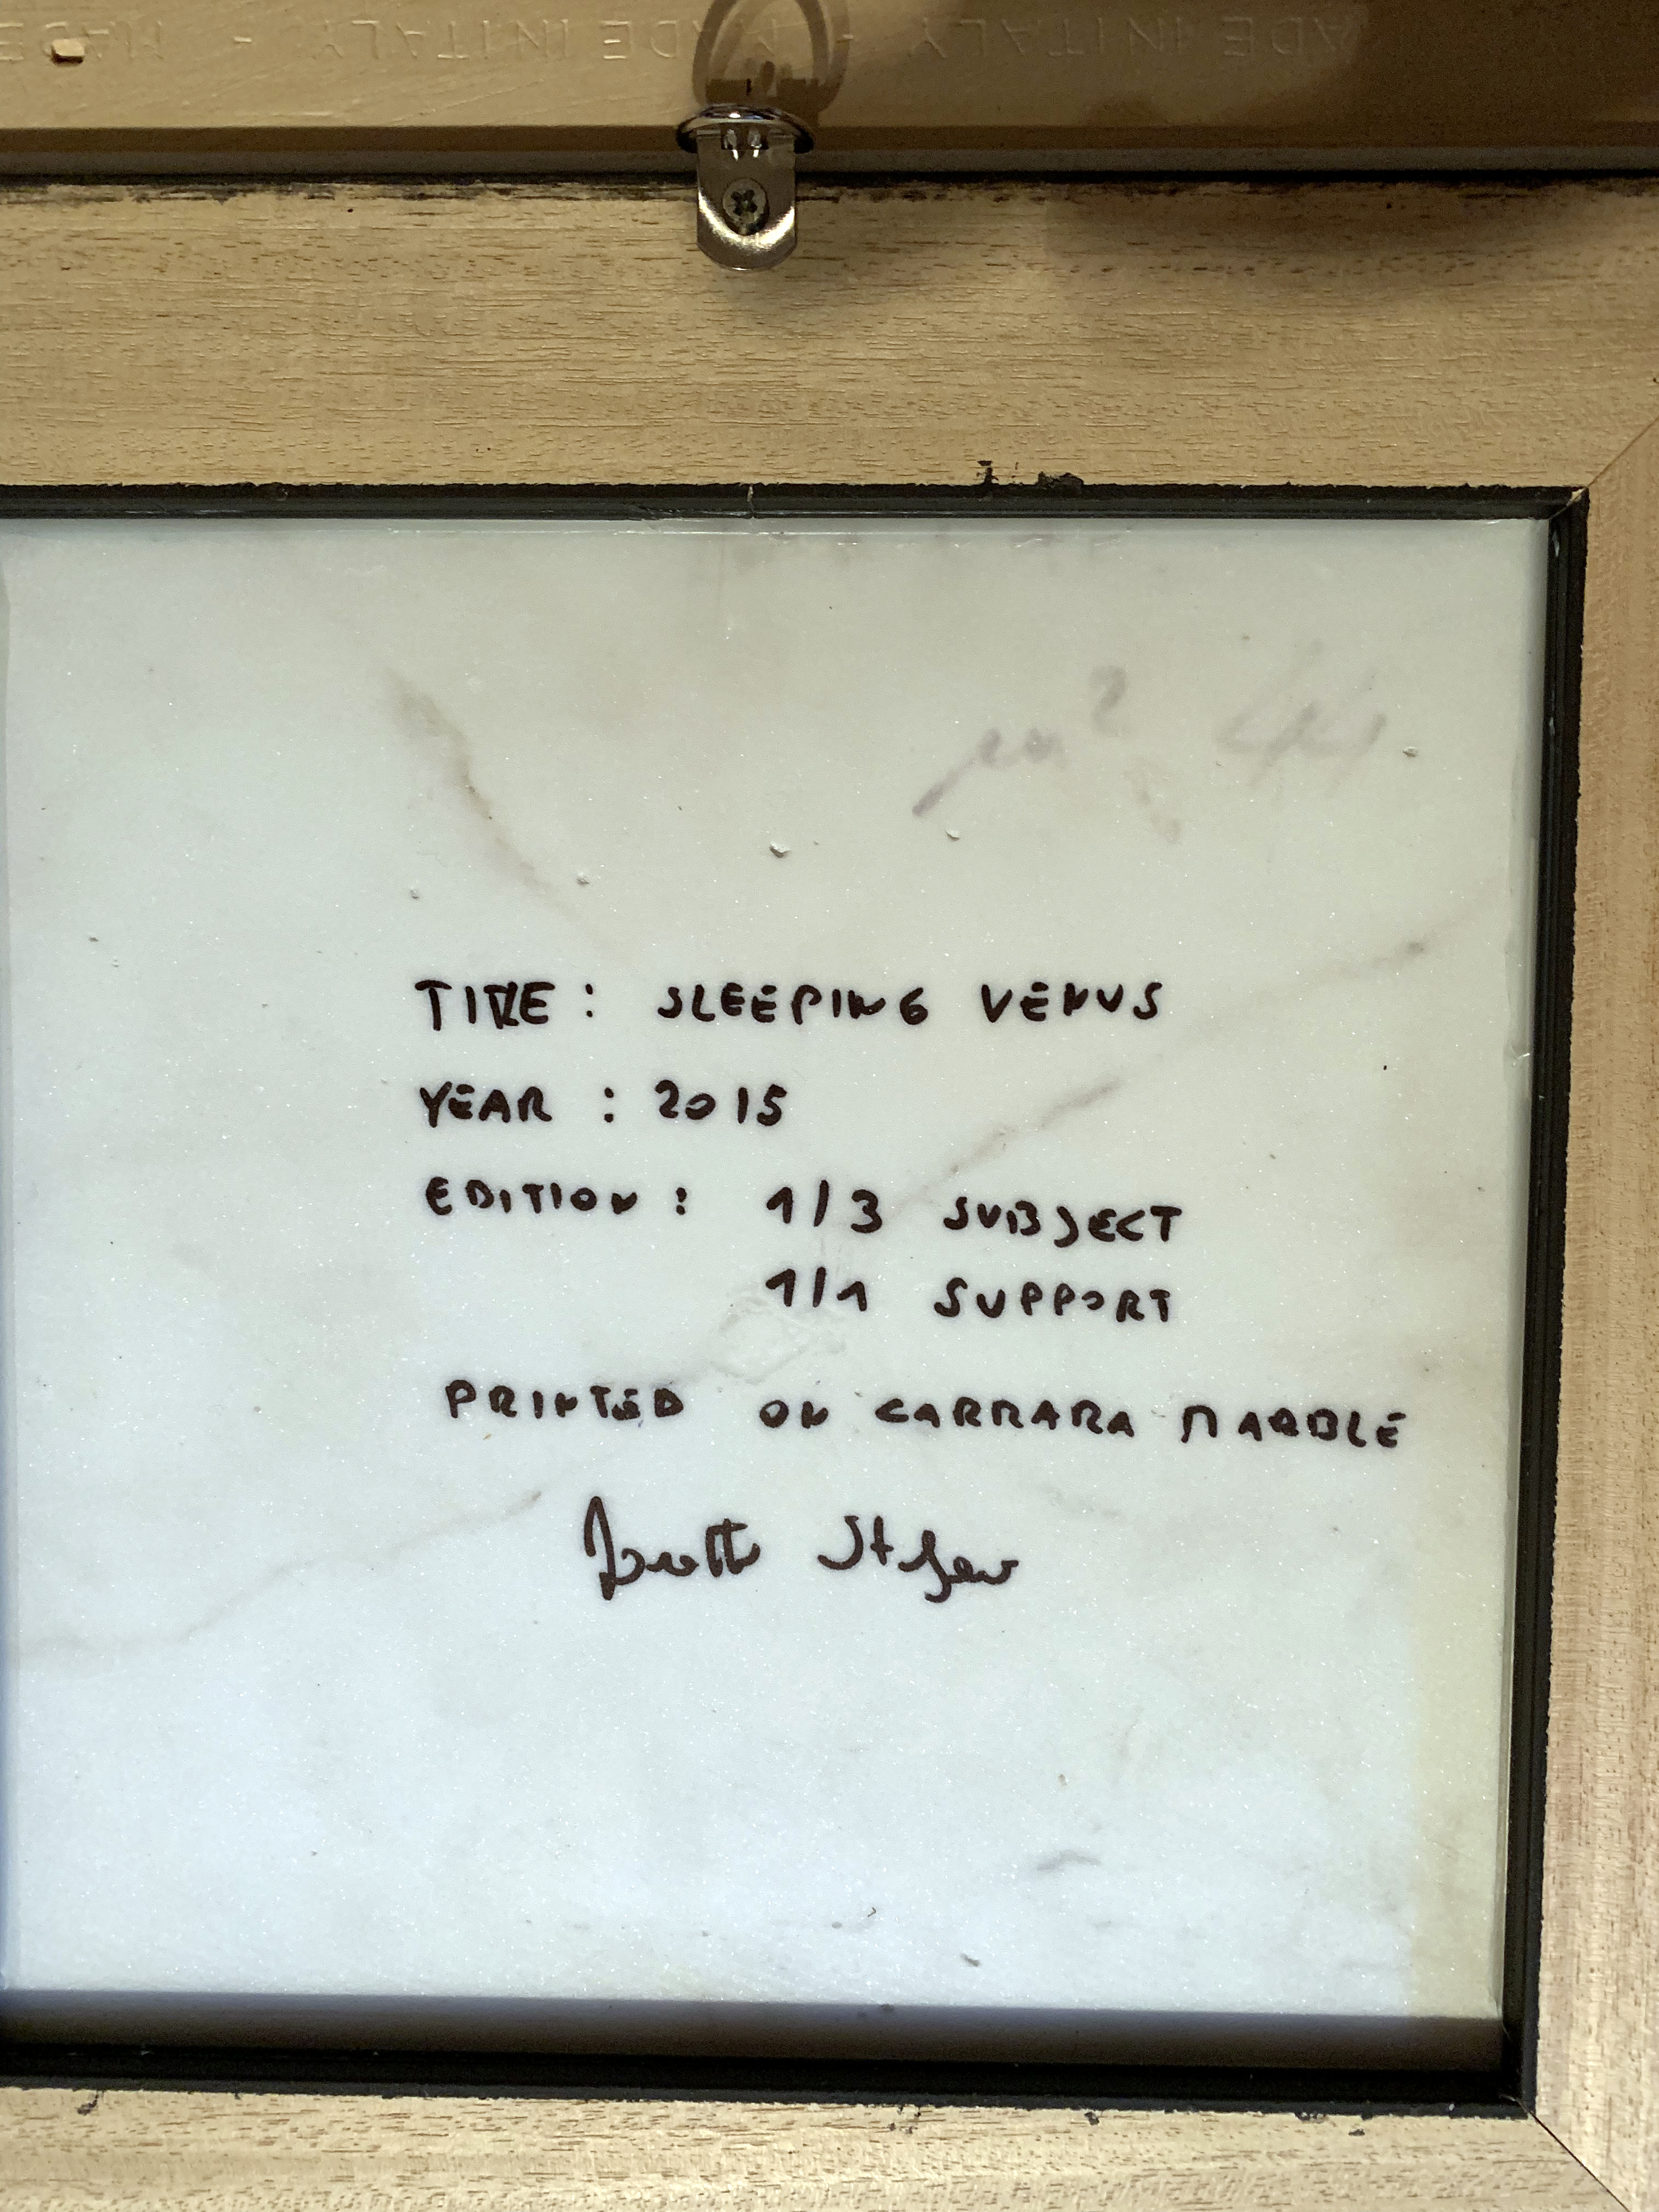 MADE IN ITALY - MADE IN ITALY - MADE
TITLE: SLEEPING VENUS
YEAR : 2015
EDITION : 1/3 SUBJECT
1/1 SUPPORT
PRINTED ON CARRARA MARBLE